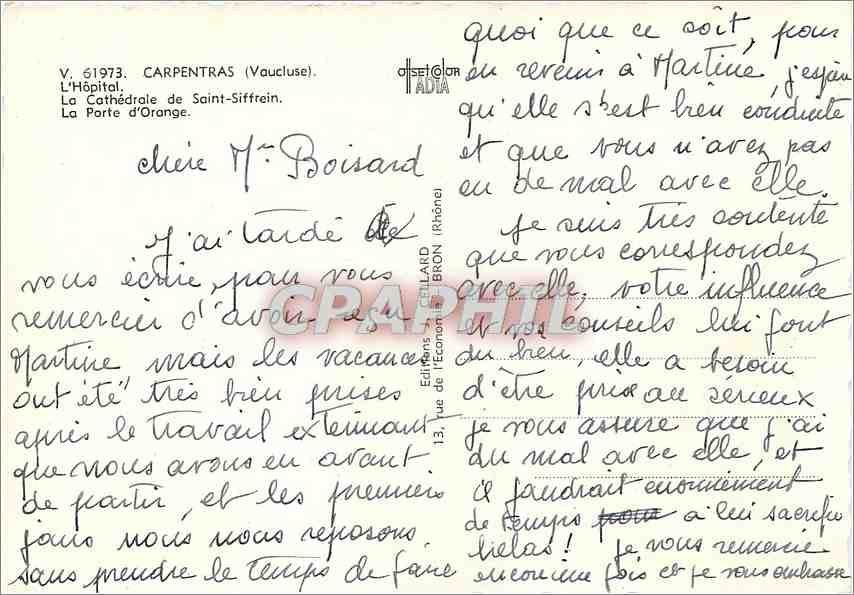 V. 61973. CARPENTRAS (Vaucluse).
L'Hôpital.
La Cathédrale de Saint-Siffrein.
La Porte d'Orange.
OFFSET COLOR
ADIA
Editions J. CELLARD
13, rue de l'Economie - BRON (Rhône)
chère Mme Boisard
J'ai tardé de
vous écrire, pour vous
remercier d'avoir reçu
Martine, mais les vacances
ont été très bien prises
après le travail exterminant
que nous avons eu avant
de partir, et les premiers
jours nous nous reposons
sans prendre le temps de faire
quoi que ce soit, pour
en revenir à Martine, j'espère
qu'elle s'est bien conduite
et que vous n'avez pas
eu de mal avec elle.
Je suis très contente
que vous correspondez
avec elle, votre influence
et vos conseils lui font
du bien, elle a besoin
d'être prise au sérieux
je vous assure que j'ai
du mal avec elle, et
il faudrait énormément
de temps pour à lui sacrifier
hélas ! je vous remercie
encore une fois et je vous embrasse
CPAPHIL